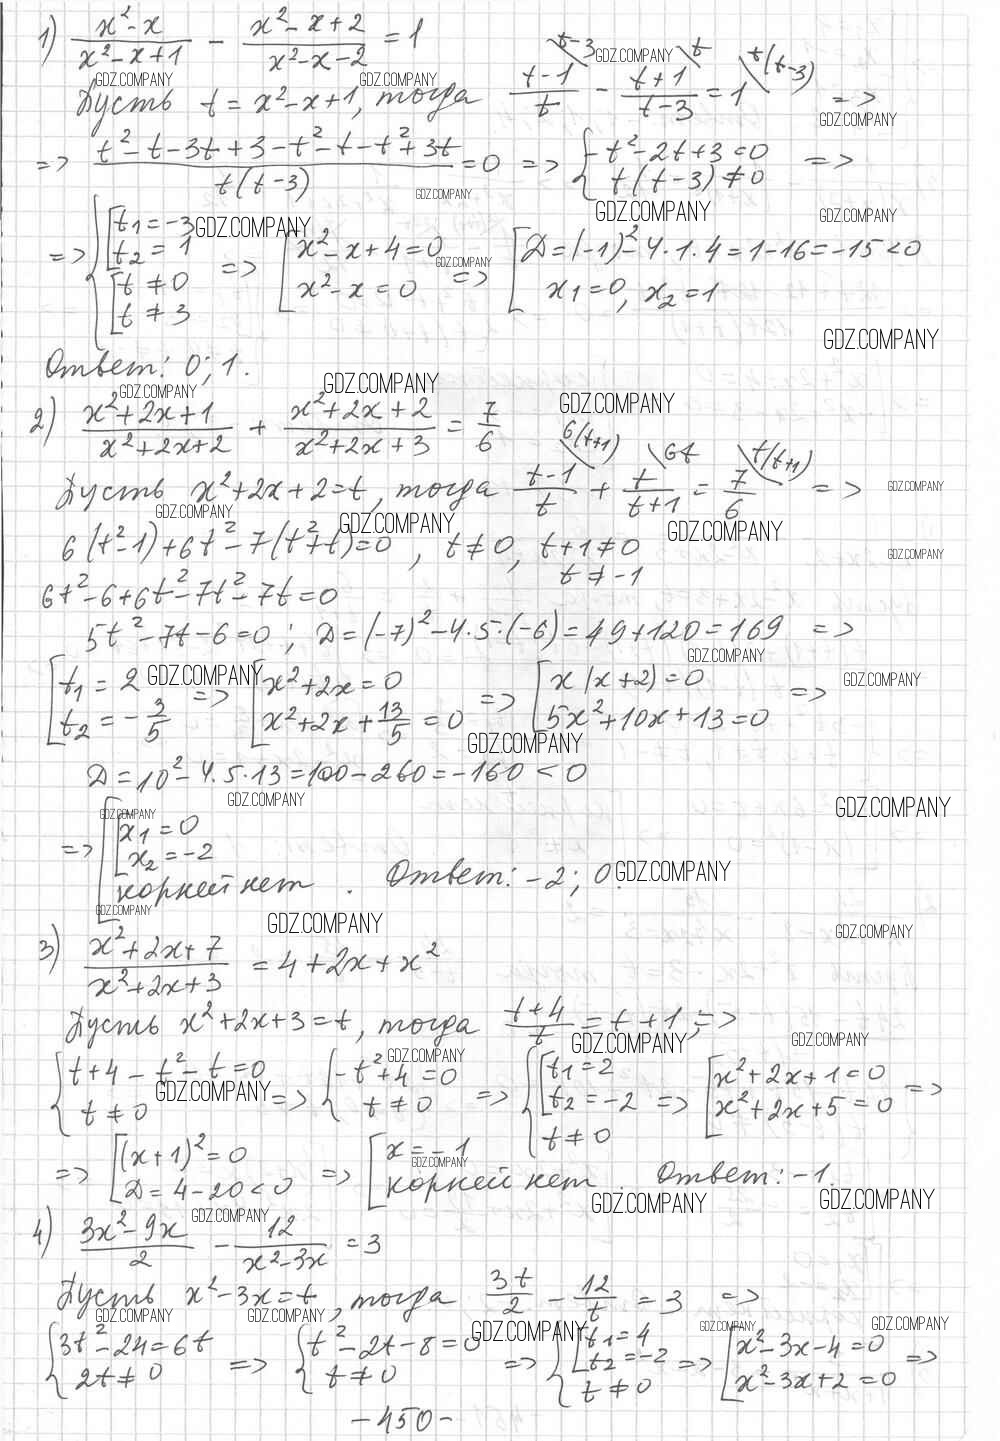 1) (x²-x)/(x²-x+1) - (x²-x+2)/(x²-x-2) = 1
Пусть t = x²-x+1, тогда (t-1)/t - (t+1)/(t-3) = 1 =>
t-3 t t(t-3)
=> (t²-t-3t+3-t²-t-t²+3t)/(t(t-3)) = 0 => { -t²-2t+3=0 t(t-3)≠0 =>
=> { [ t₁=-3 t₂=1 [ t≠0 t≠3 => [ x²-x+4=0 x²-x=0 => [ D=(-1)²-4·1·4=1-16=-15<0 x₁=0, x₂=1
Ответ: 0; 1.
2) (x²+2x+1)/(x²+2x+2) + (x²+2x+2)/(x²+2x+3) = 7/6
6(t+1) 6t t(t+1)
Пусть x²+2x+2=t, тогда (t-1)/t + t/(t+1) = 7/6 =>
6(t²-1)+6t²-7(t²+t)=0, t≠0, t+1≠0
t≠-1
6t²-6+6t²-7t²-7t=0
5t²-7t-6=0; D=(-7)²-4·5·(-6)=49+120=169 =>
[ t₁=2 t₂=-3/5 => [ x²+2x=0 x²+2x+13/5=0 => [ x(x+2)=0 5x²+10x+13=0 =>
D=10²-4·5·13=100-260=-160<0
=> [ [ x₁=0 x₂=-2 корней нет. Ответ: -2; 0.
3) (x²+2x+7)/(x²+2x+3) = 4+2x+x²
Пусть x²+2x+3=t, тогда (t+4)/t = t+1; =>
{ t+4-t²-t=0 t≠0 => { -t²+4=0 t≠0 => { [ t₁=2 t₂=-2 t≠0 => [ x²+2x+1=0 x²+2x+5=0 =>
=> [ (x+1)²=0 D=4-20<0 => [ x=-1 корней нет. Ответ: -1.
4) (3x²-9x)/2 - 12/(x²-3x) = 3
Пусть x²-3x=t, тогда 3t/2 - 12/t = 3 =>
{ 3t²-24=6t 2t≠0 => { t²-2t-8=0 t≠0 => { [ t₁=4 t₂=-2 t≠0 => [ x²-3x-4=0 x²-3x+2=0 =>
-450-
GDZ.COMPANY